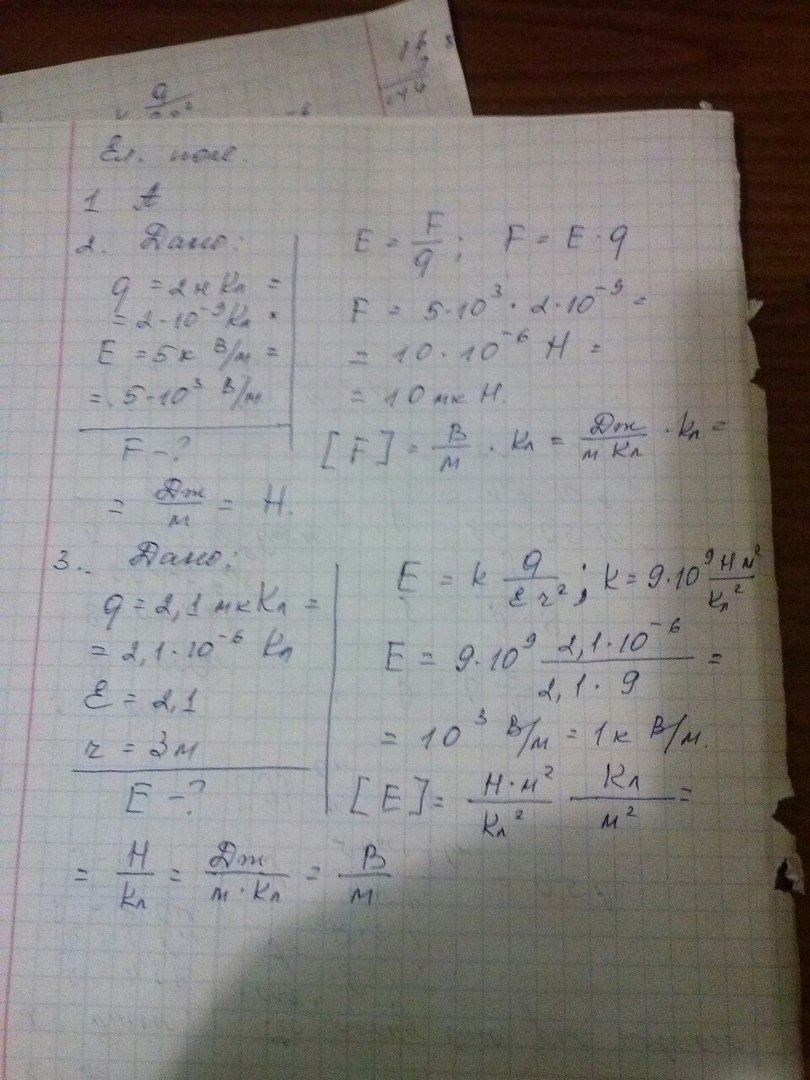 Ел. поле.
1 А
2. Дано:
q = 2 нКл =
= 2·10⁻⁹ Кл
E = 5 к В/м =
= 5·10³ В/м
F - ?
E = F/q ; F = E·q
F = 5·10³ · 2·10⁻⁹ =
= 10·10⁻⁶ Н =
= 10 мк Н.
[F] = В/м · Кл = Дж/м Кл · Кл =
= Дж/м = Н.
3. Дано:
q = 2,1 мкКл =
= 2,1·10⁻⁶ Кл
ε = 2,1
r = 3м
E - ?
E = k q/εr² ; k = 9·10⁹ Н м²/Кл²
E = 9·10⁹ 2,1·10⁻⁶/2,1·9 =
= 10³ В/м = 1 к В/м.
[E] = Н·м²/Кл² Кл/м² =
= Н/Кл = Дж/м·Кл = В/м